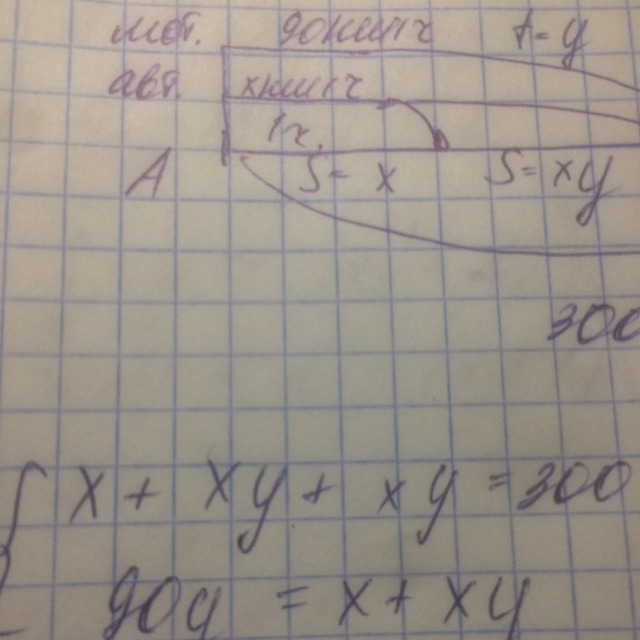 моб. 90км/ч t=y
авт. xкм/ч
1ч.
A S=x S=xy
300
x + xy + xy = 300
90y = x + xy